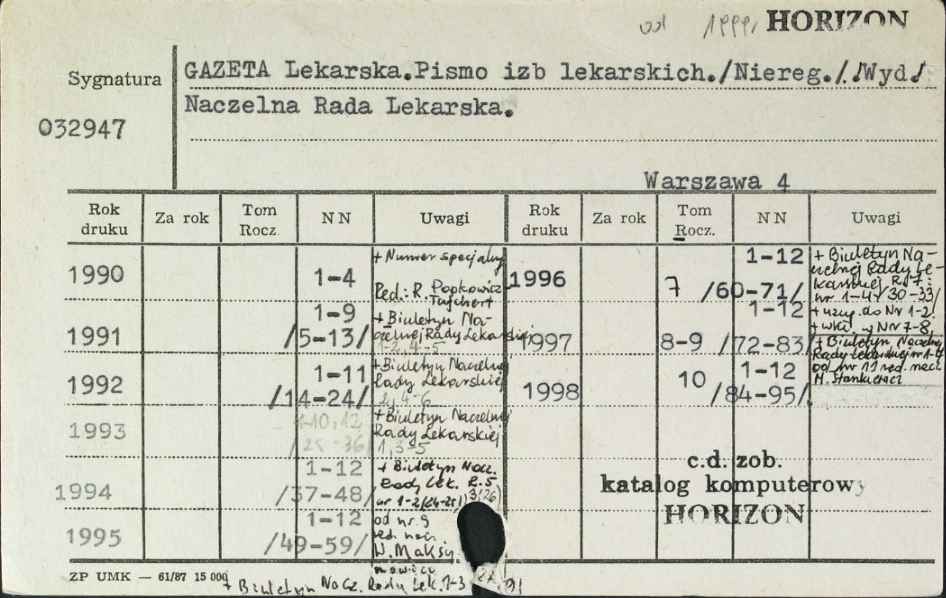 od 1999, HORIZON
Sygnatura
032947
GAZETA Lekarska.Pismo izb lekarskich./Niereg././Wyd/
Naczelna Rada Lekarska.
Warszawa 4
Rok druku Za rok Tom Rocz. NN Uwagi Rok druku Za rok Tom Rocz. NN Uwagi
1990 1-4 + Numer specjalny
Red.: R. Popkowicz-Tajchert
1991 1-9 /5-13/ + Biuletyn Naczelnej Rady Lekarskiej
1-2, 4-5
1992 1-11 /14-24/ + Biuletyn Naczelnej Rady Lekarskiej
2, 4-6
1993 1-10, 12 /25-36/ + Biuletyn Naczelnej Rady Lekarskiej
1, 3-5
1994 1-12 /37-48/ + Biuletyn Nacz. Rady Lek. R.5
nr 1-2 3/26/
1995 1-12 /49-59/ od nr 9
red. nacz.
W. Maksymowicz
1996 7 1-12 /60-71/ + Biuletyn Naczelnej Rady Lekarskiej R. 7:
nr 1-4 /30-33/
1997 8-9 1-12 /72-83/ + uzup. do Nr 1-2.
+ wkł. w Nr 7-8,
+ Biuletyn Naczelnej Rady Lekarskiej nr 1-4
od nr 11 red. nacz.
M. Stankiewicz
1998 10 1-12 /84-95/
c.d. zob.
katalog komputerowy
HORIZON
ZP UMK — 61/87 15 000
+ Biuletyn Nacz. Rady Lek. 1-3